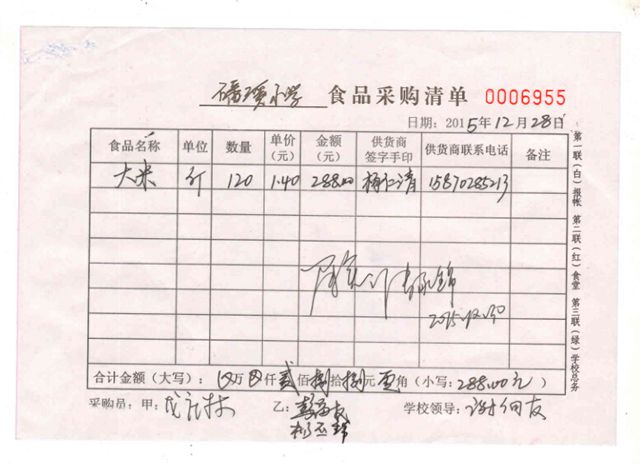 小学 食品采购清单 0006955
日期：2015年12月28日
食品名称 单位 数量 单价（元） 金额（元） 供货商签字手印 供货商联系电话 备注
大米 斤 120 1.40 288.00 杨仁清 15870285213
2015.12.30
合计金额（大写）：万 仟 贰佰捌拾捌元 角（小写：288.00元）
采购员：甲： 乙： 学校领导：
第一联（白）报帐 第二联（红）食堂 第三联（绿）学校总务